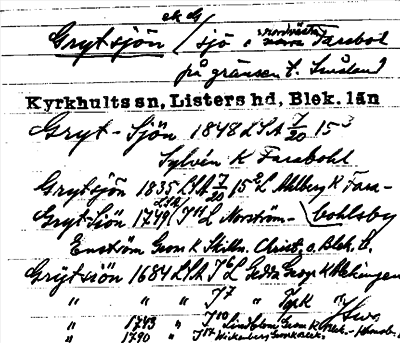 ek G
Grytsjön / sjö i nordvästra Farabol
på gränsen t. Småland
Kyrkhults sn, Listers hd, Blek. län
Gryt-Sjön 1848 LSA 7/20 15³
Sylvén K Farabohl
Grytsjön 1835 LSA 7/20 15² L Ahlberg K Fara-
bohlsby
Gryt-Siön 1749 LSA J¹⁴ L Norström-
Enström Geom K Skilln. Christ. o. Blek. L.
Grÿtsiön 1684 LSA J⁶ L Gedda Geogr K Blekingen
" " " J⁷ " TopK "
" 1743 " J¹⁰
" 1790 " J¹⁷